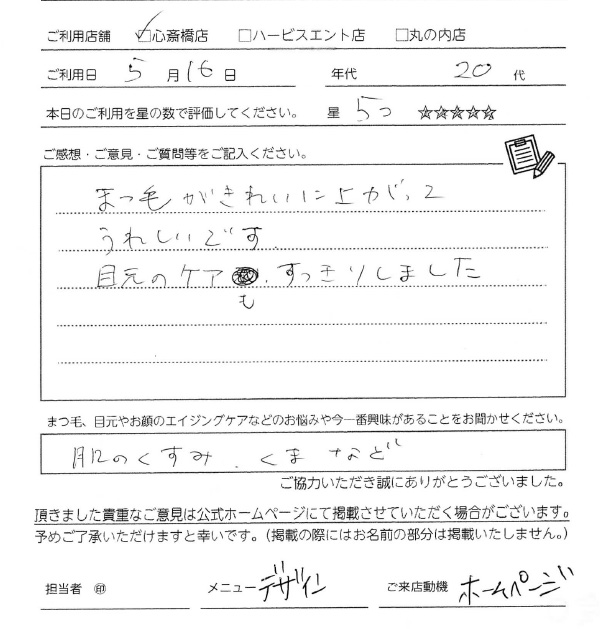 ご利用店舗 ☑心斎橋店 □ハービスエント店 □丸の内店
ご利用日 5月16日 年代 20代
本日のご利用を星の数で評価してください。 星 5つ ☆☆☆☆☆
ご感想・ご意見・ご質問等をご記入ください。
まつ毛がきれいに上がって
うれしいです。
目元のケアも、すっきりしました
まつ毛、目元やお顔のエイジングケアなどのお悩みや今一番興味があることをお聞かせください。
肌のくすみ、くまなど
ご協力いただき誠にありがとうございました。
頂きました貴重なご意見は公式ホームページにて掲載させていただく場合がございます。
予めご了承いただけますと幸いです。(掲載の際にはお名前の部分は掲載いたしません。)
担当者 ㊞ メニュー デザイン ご来店動機 ホームページ